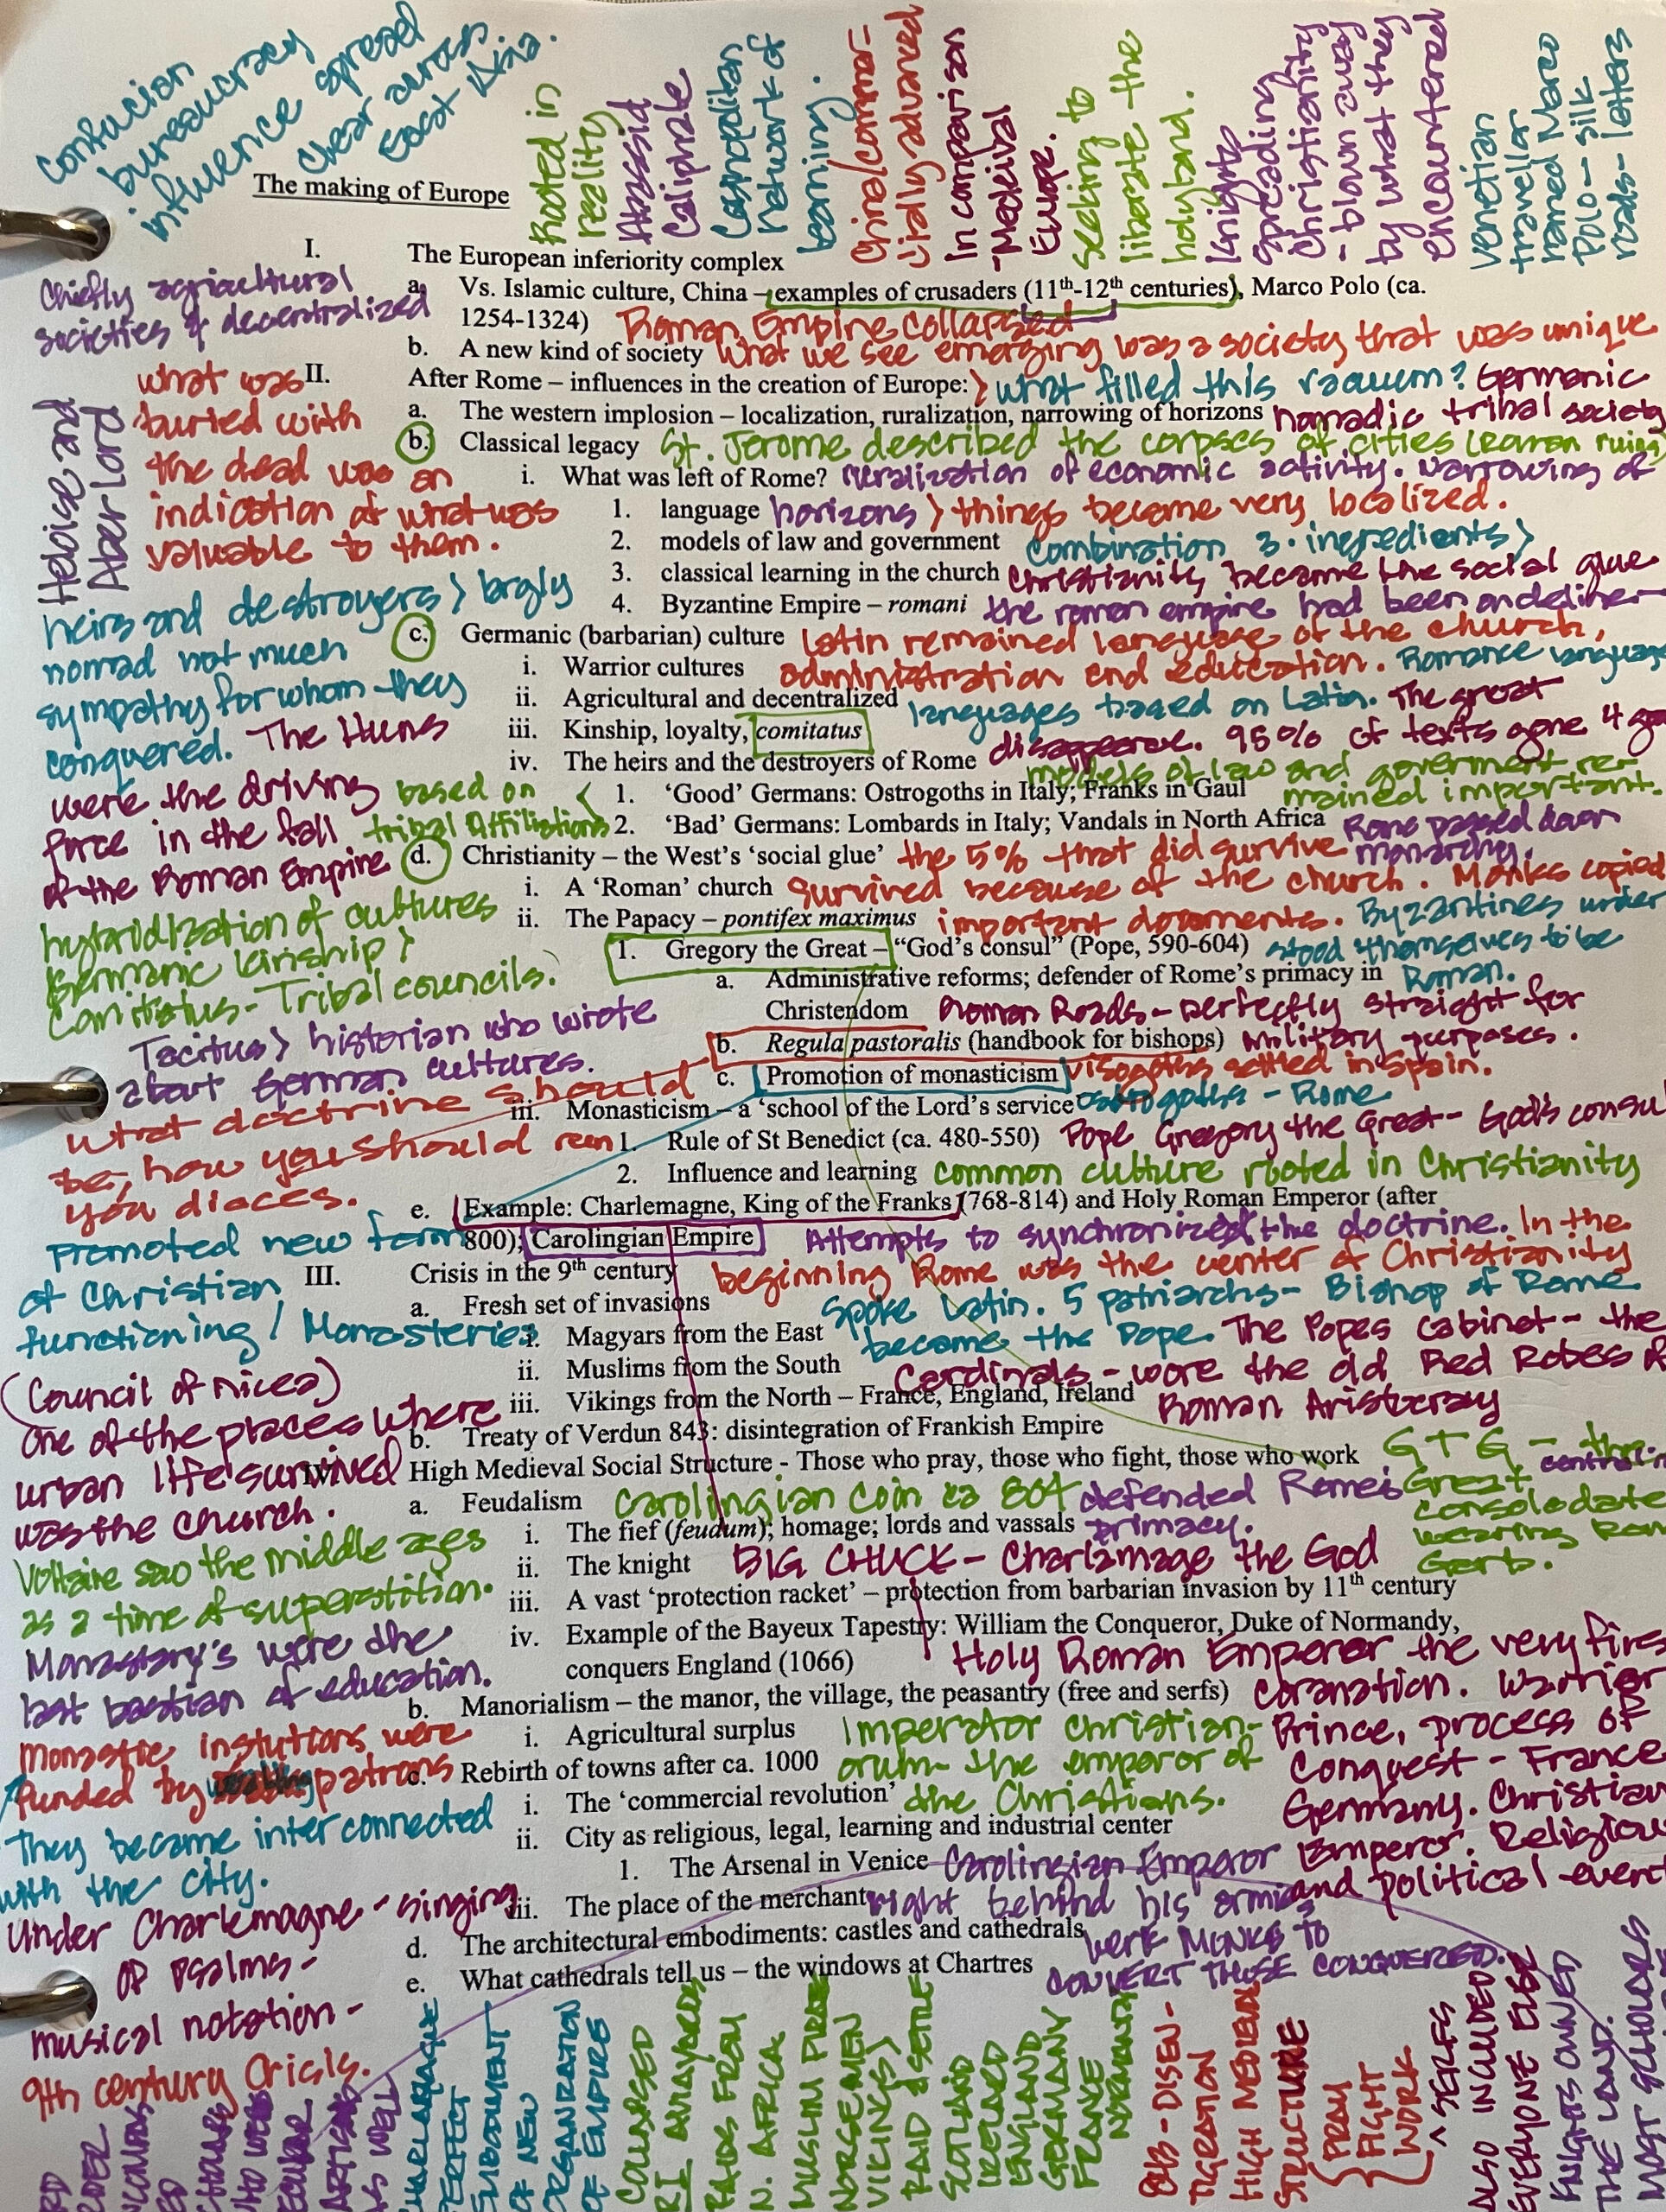 Confucian
bureaucracy
influence spread
clear across
East Asia.
Rooted in
reality
Abassid
Caliphate
Cosmopolitan
network of
learning.
China/commer-
cially advanced
in comparison
-Medeival
Europe.
seeking to
liberate the
holyland.
Knights
spreading
Christianity
- blown away
by what they
encountered
venetian
traveller
named Marco
Polo - silk
roads - letters
The making of Europe
I. The European inferiority complex
a. Vs. Islamic culture, China – examples of crusaders (11th-12th centuries), Marco Polo (ca.
1254-1324) Roman Empire collapsed
b. A new kind of society What we see emerging was a society that was unique
II. After Rome – influences in the creation of Europe: > what filled this vacuum? Germanic
a. The western implosion – localization, ruralization, narrowing of horizons nomadic tribal society
b. Classical legacy St. Jerome described the corpses of cities (Roman ruins
i. What was left of Rome? ruralization of economic activity. Narrowing of
1. language horizons > things become very localized.
2. models of law and government Combination 3 ingredients >
3. classical learning in the church Christianity became the social glue
4. Byzantine Empire – romani the roman empire had been on decline
c. Germanic (barbarian) culture Latin remained language of the church,
i. Warrior cultures administration and education. Romance language
ii. Agricultural and decentralized languages based on Latin. The great
iii. Kinship, loyalty, comitatus disappearance. 95% of texts gone
iv. The heirs and the destroyers of Rome models of law and goverment re-
1. ‘Good’ Germans: Ostrogoths in Italy; Franks in Gaul mained important.
2. ‘Bad’ Germans: Lombards in Italy; Vandals in North Africa Rome passed down
monarchy.
d. Christianity – the West’s ‘social glue’ the 5% that did survive
i. A ‘Roman’ church survived because of the church. Monks copied
ii. The Papacy – pontifex maximus important documents. Byzantines under
1. Gregory the Great – “God’s consul” (Pope, 590-604) stood themselves to be
a. Administrative reforms; defender of Rome’s primacy in Roman.
Christendom Roman Roads - perfectly straight for
b. Regula pastoralis (handbook for bishops) military purposes.
c. Promotion of monasticism visogoths settled in Spain.
iii. Monasticism – a ‘school of the Lord’s service’ ostrogoths - Rome
1. Rule of St Benedict (ca. 480-550) Pope Gregory the Great - God's consul
2. Influence and learning common culture rooted in Christianity
e. Example: Charlemagne, King of the Franks (768-814) and Holy Roman Emperor (after
800); Carolingian Empire Attempts to synchronized the doctrine. In the
III. Crisis in the 9th century beginning Rome was the center of Christianity
a. Fresh set of invasions Spoke Latin. 5 patriarchs - Bishop of Rome
i. Magyars from the East became the Pope. The Popes cabinet - the
ii. Muslims from the South Cardinals - wore the old Red Robes of
iii. Vikings from the North – France, England, Ireland Roman Aristocracy
b. Treaty of Verdun 843: disintegration of Frankish Empire
IV. High Medieval Social Structure - Those who pray, those who fight, those who work GTG - the
Great
consolodate
wearing Rom
Garb.
a. Feudalism Carolingian coin ca 804 defended Rome's
i. The fief (feudum); homage; lords and vassals primacy.
ii. The knight BIG CHUCK - Charlamage the God
iii. A vast ‘protection racket’ – protection from barbarian invasion by 11th century
iv. Example of the Bayeux Tapestry: William the Conqueror, Duke of Normandy,
conquers England (1066) Holy Roman Emperor the very first
b. Manorialism – the manor, the village, the peasantry (free and serfs) coranation. Warrior
i. Agricultural surplus Imperator christian- Prince, process of
c. Rebirth of towns after ca. 1000 orum- the emperor of Conquest - France
i. The ‘commercial revolution’ the Christians. Germany. Christian
ii. City as religious, legal, learning and industrial center
1. The Arsenal in Venice Carolingian Emperor Emperor. Religious
iii. The place of the merchant right behind his armies and political event
d. The architectural embodiments: castles and cathedrals were MONKS TO
e. What cathedrals tell us – the windows at Chartres CONVERT THOSE CONQUERED.
Chiefly agricultural
societies & decentralized
Heloise and
Aberlord
what was
buried with
the dead was an
indication of what was
valuable to them.
heirs and destroyers > largly
nomad not much
sympathy for whom they
conquered. The Huns
were the driving
force in the fall
of the Roman Empire
based on
tribal affiliations
hybridization of cultures
Germanic kinship >
Comitatus - Tribal councils.
Tacitus > historian who wrote
about German cultures.
what doctrine should
be, how you should run
you dioces.
promoted new form
of Christian
functioning / Monasteries
(Council of nicea)
one of the places where
urban life survived
was the church.
Voltaire saw the middle ages
as a time of superstition.
Monastary's were the
last bastian of education.
Monastic instutions were
funded by patrons
They became inter connected
with the city.
Under Charlemagne - singing
of psalms -
musical notation -
9th century Crisis.
ARTISANS
AS WELL
CHARLAMAGUE
PERFECT
EMBODIMENT
OF NEW
ORGANIZATION
OF EMPIRES
COLLAPSED
RAIDS FROM
N. AFRICA
MUSLIM PIRATES
NORSEMEN
VICKINGS >
RAID & SETTLE
SCOTLAND
IRELAND
ENGLAND
GERMANY
FRANCE
NORMANDY
843 - DISEN-
TIGRATION
HIGH MEDIEVAL
STRUCTURE
PRAY
FIGHT
WORK
^ SERFS
ALSO INCLUDED
EVERYONE ELSE
KNIGHTS OWNED
THE LAND.
MOST SCHOLARS